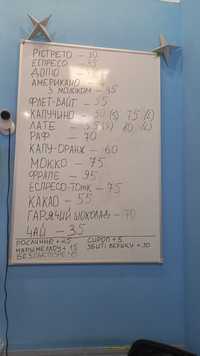 РІСТРЕТО – 30
ЕСПРЕСО – 35
ДОПІО –
АМЕРИКАНО –
З МОЛОКОМ – 45
ФЛЕТ-ВАЙТ – 55
КАПУЧИНО – 50 (S) 75 (L)
ЛАТЕ – 55 (S) 80 (L)
РАФ – 70
КАПУ-ОРАНЖ – 60
МОККО – 75
ФРАПЕ – 95
ЕСПРЕСО-ТОНІК – 75
КАКАО – 55
ГАРЯЧИЙ ШОКОЛАД – 70
ЧАЙ – 35
РОСЛИННЕ +25 СИРОП +5
МАРШМЕЛОУ + 15 ЗБИТІ ВЕРШКИ + 30
БЕЗЛАКТОЗНЕ